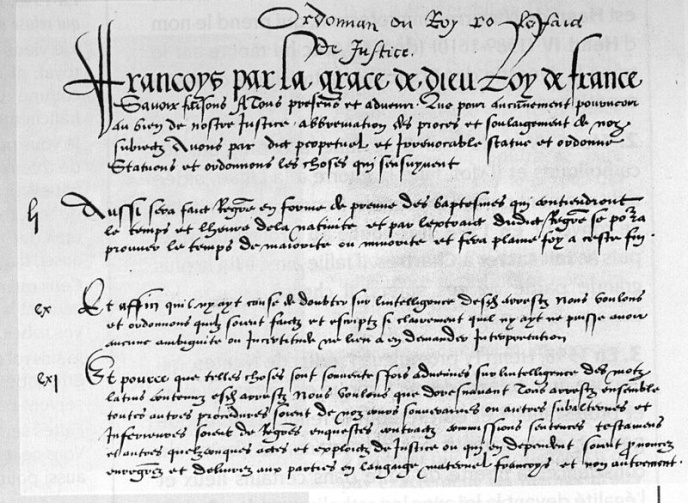 Ordonnan du Roy
De Justice.
Francoys par la grace de dieu Roy de france
Scavoir faisons A Tous presens et advenir. Que pour aucunement pourveoir
au bien de nostre Justice. abbreviation des proces et soulagement de noz
subiectz Avons par edict perpetuel et Irrevocable statue et ordonne
Statuons et ordonnons les choses qui sensuyvent
lj Aussi sera faict Regre en forme de preuve des baptesmes qui contiendront
le temps et lheure dela nativite et par lextraict dudict Regre se porra
prouver le temps de maiorite ou minorite et fera plaine foy a ceste fin.
cx Et affin quil ny ayt cause de doubter sur lintelligence desdz arrestz Nous voulons
et ordonnons quilz soient faictz et escriptz si clairement quil ny ayt ne puisse avoir
aucune ambiguite ou Incertitude ne lieu a en demander Interpretation
cxj Et pource que telles choses sont souventesfois advenues sur lintelligence des motz
latins contenuz esdz arrestz Nous voulons que doresnavant Tous arrestz ensemble
toutes autres procedures soient de noz cours souveraines ou autres subalternes et
Inferieures soient de Regres enquestes contractz commissions sentences testamens
et autres quelzconques actes et exploictz de Justice ou qui en dependent soient prononcez
enregrez et delivrez aux parties en langaige maternel francoys et non autrement.